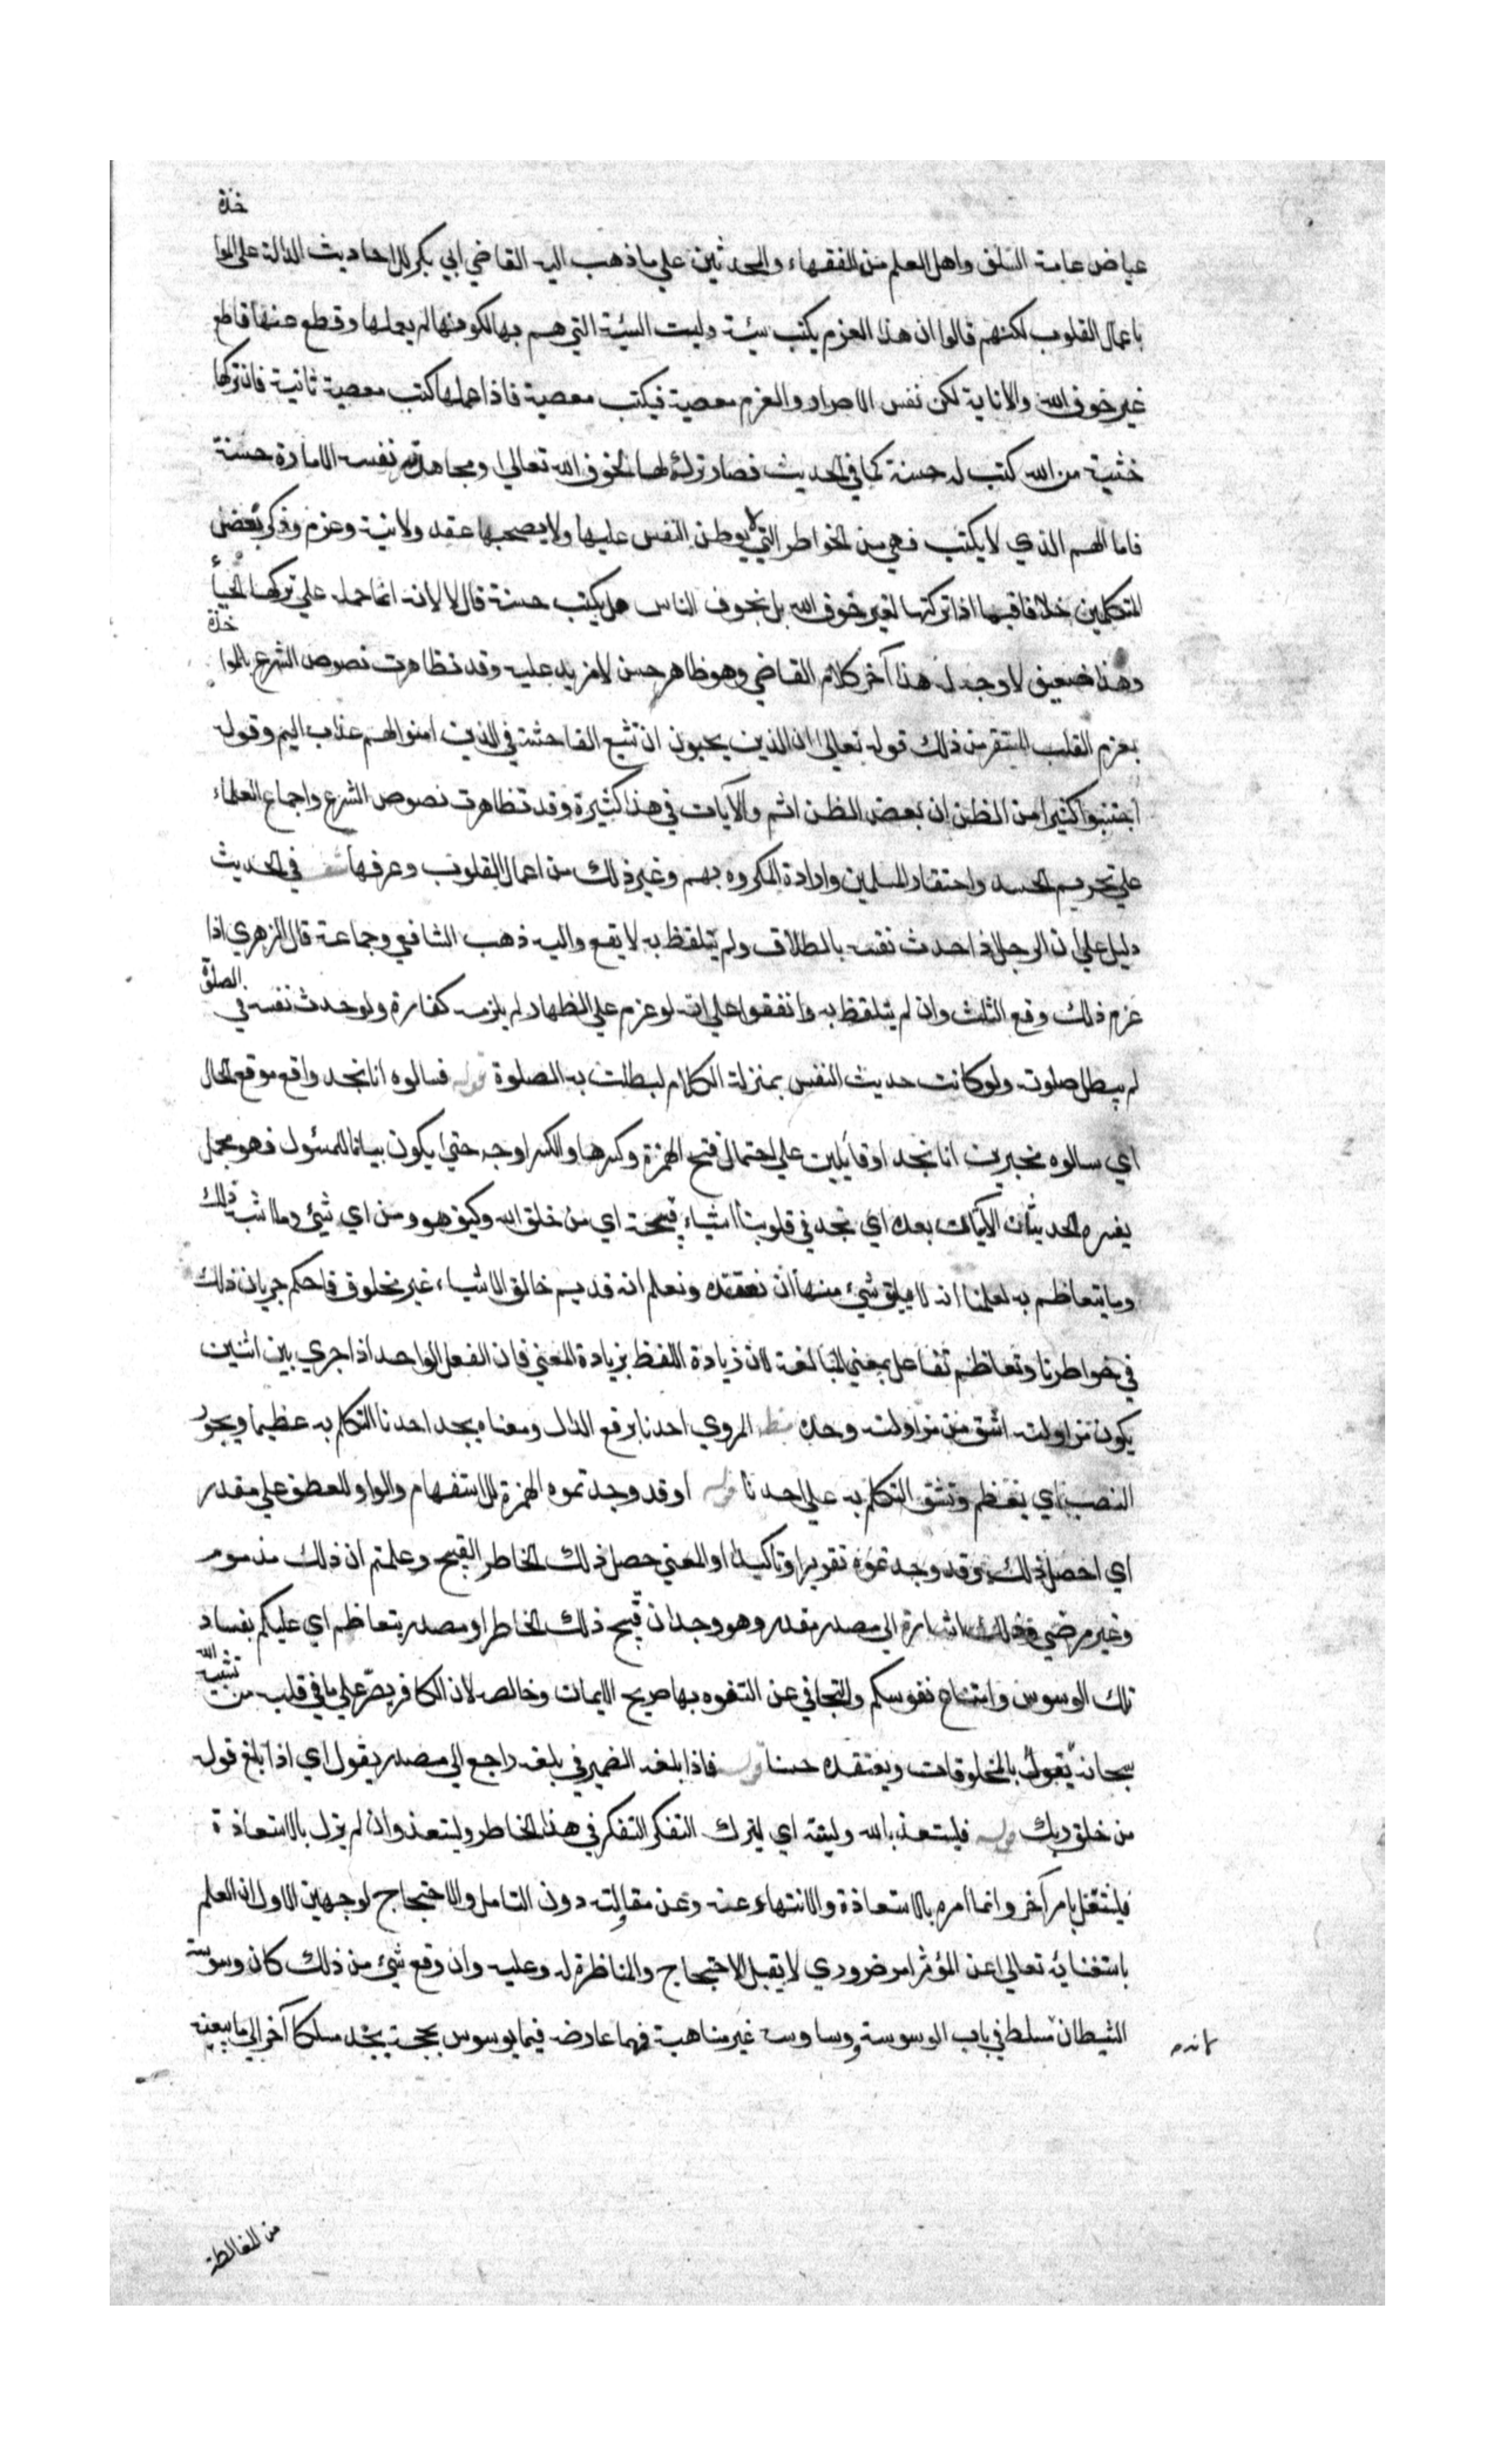 عياض عامة السلف واهل العلم من الفقهاء والمحدثين على ما ذهب اليه القاضي ابي بكر للاحاديث الدالة على الموا خذة
باعمال القلوب لكنهم قالوا ان هذا العزم يكتب سيئة وليست السيئة التي هم بها لكونها لم يعملها وقطع عنها قاطع
غير خوف الله والانابة لكن نفس الاصرار والعزم معصية فيكتب معصية فاذا عملها كتب معصية ثانية فان تركها
خشية من الله كتب له حسنة كما في الحديث فصار تركه لها لخوف الله تعالى ومجاهدته نفسه الامارة حسنة
فاما الهم الذي لا يكتب فهي من الخواطر التي لا يوطن النفس عليها ولا يصحبها عقد ولا نية وعزم وذكر بعض
المتكلمين خلافا فيما اذا تركتها لغير خوف الله بل لخوف الناس هل يكتب حسنة قال لا لانه انما حمله على تركها الحياء
وهذا ضعيف لا وجه له هذا آخر كلام القاضي وهو ظاهر حسن لا مزيد عليه وقد تظاهرت نصوص الشرع بالموا خذة
بعزم القلب المستقر من ذلك قوله تعالى ان الذين يحبون ان تشيع الفاحشة في الذين امنوا لهم عذاب اليم وقوله
اجتنبوا كثيرا من الظن ان بعض الظن اثم والآيات في هذا كثيرة وقد تظاهرت نصوص الشرع واجماع العلماء
على تحريم الحسد واحتقار المسلمين وارادة المكروه بهم وغير ذلك من اعمال القلوب وعرفها في الحديث
دليل على ان الرجل اذا حدث نفسه بالطلاق ولم يتلفظ به لا يقع واليه ذهب الشافعي وجماعة قال الزهري اذا
عزم ذلك وقع الثلث وان لم يتلفظ به واتفقوا على انه لو عزم على الظهار لم يلزمه كفارة ولو حدث نفسه في الصلوة
لم يبطل صلوته ولو كانت حديث النفس بمنزلة الكلام لبطلت به الصلوة قوله فسالوه انا نجد واقع موقع الحال
اي سالوه مخبرين انا نجد او قايلين على احتمال فتح الهمزة وكسرها والكسر اوجه حتى يكون بيانا للمسئول فهو مجمل
يفسره الحديثان الآتيان بعده اي نجد في قلوبنا اشياء قبيحة اي من خلق الله وكيف هو ومن اي شئ وما اشبه ذلك
وما يتعاظم به لعلمنا انه لا يليق شئ منها ان نعتقده ونعلم انه قديم خالق الاشياء غير مخلوق فما حكم جريان ذلك
في خواطرنا وتعاظم تفاعل بمعنى المبالغة لان زيادة اللفظ بزيادة المعنى فان الفعل الواحد اذا جرى بين اثنين
يكون مزاولته اشق من مزاولته وحده المروي احدنا برفع الدال ومعناه يجد احدنا التكلم به عظيما ويجوز
النصب اي يعظم وتشق التكلم به على احدنا قوله اوقد وجدتموه الهمزة للاستفهام والواو للعطف على مقدر
اي احصل ذلك وقد وجدتموه تقريرا وتاكيدا او المعنى حصل ذلك الخاطر القبيح وعلمتم ان ذلك مذموم
وغير مرضي فذلك اشارة الى مصدر مقدر وهو وجدان قبيح ذلك الخاطر او مصدر يتعاظم اي عليكم بفساد
تلك الوسوس وامتناع نفوسكم والتجافي عن التفوه بها صريح الايمان وخالصه لان الكافر يصر على ما في قلبه من تشبيه الله
سبحانه بالمخلوقات ويعتقده حسنا قوله فاذا بلغه الضمير في بلغه راجع الى مصدر يقول اي اذا بلغ قوله
من خلق ربك قوله فليستعذ بالله ولينته اي ليترك التفكر التفكر في هذا الخاطر وليستعذ وان لم يزل بالاستعاذة
فليشتغل بامر آخر وانما امره بالاستعاذة والانتهاء عنه وعن مقابلته دون التامل والاحتجاج لوجهين الاول ان العلم
باستغنائه تعالى عن المؤثر امر ضروري لا يقبل الاحتجاج والمناظرة له وعليه وان وقع شئ من ذلك كان وسوسة
الشيطان مسلط في باب الوسوسة ووساوسه غير متناهية فمهما عارضه فيما يوسوس بحجة يجد مسلكا آخر الى ما يبتغيه
من المغالطة